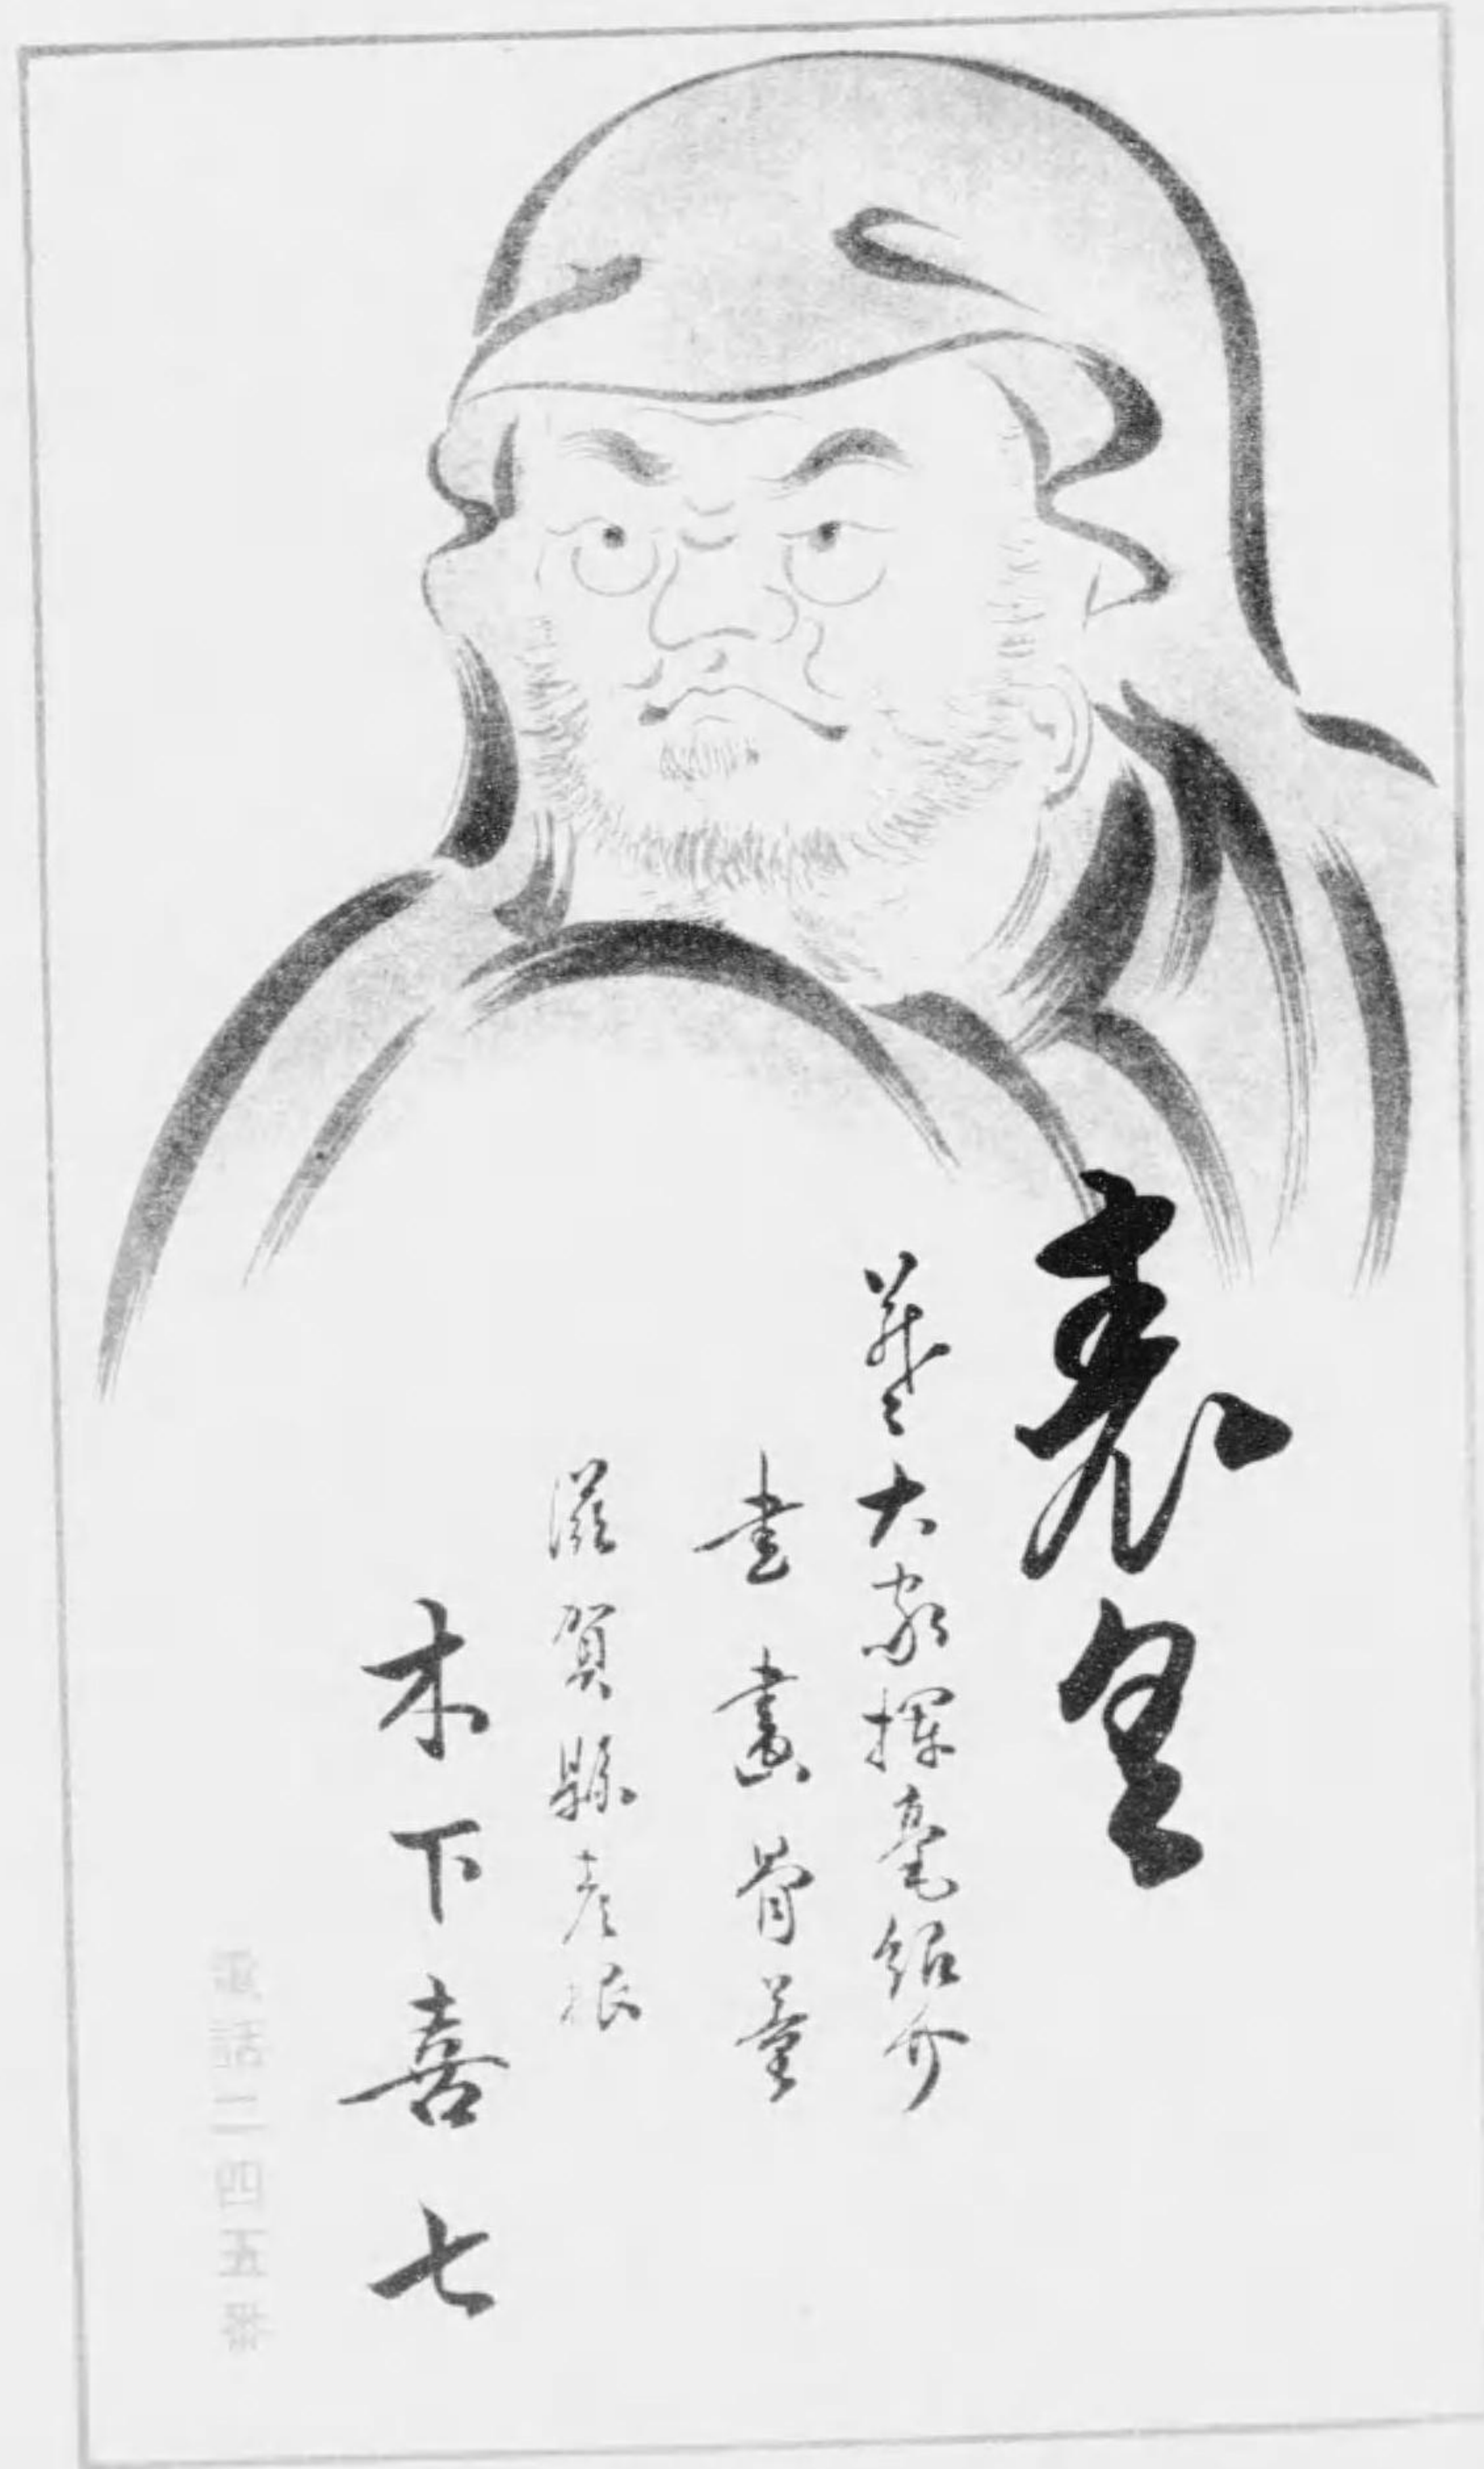 表具
大家揮毫紹介
書畫骨董
滋賀縣彦根
木下喜七
電話二四五番